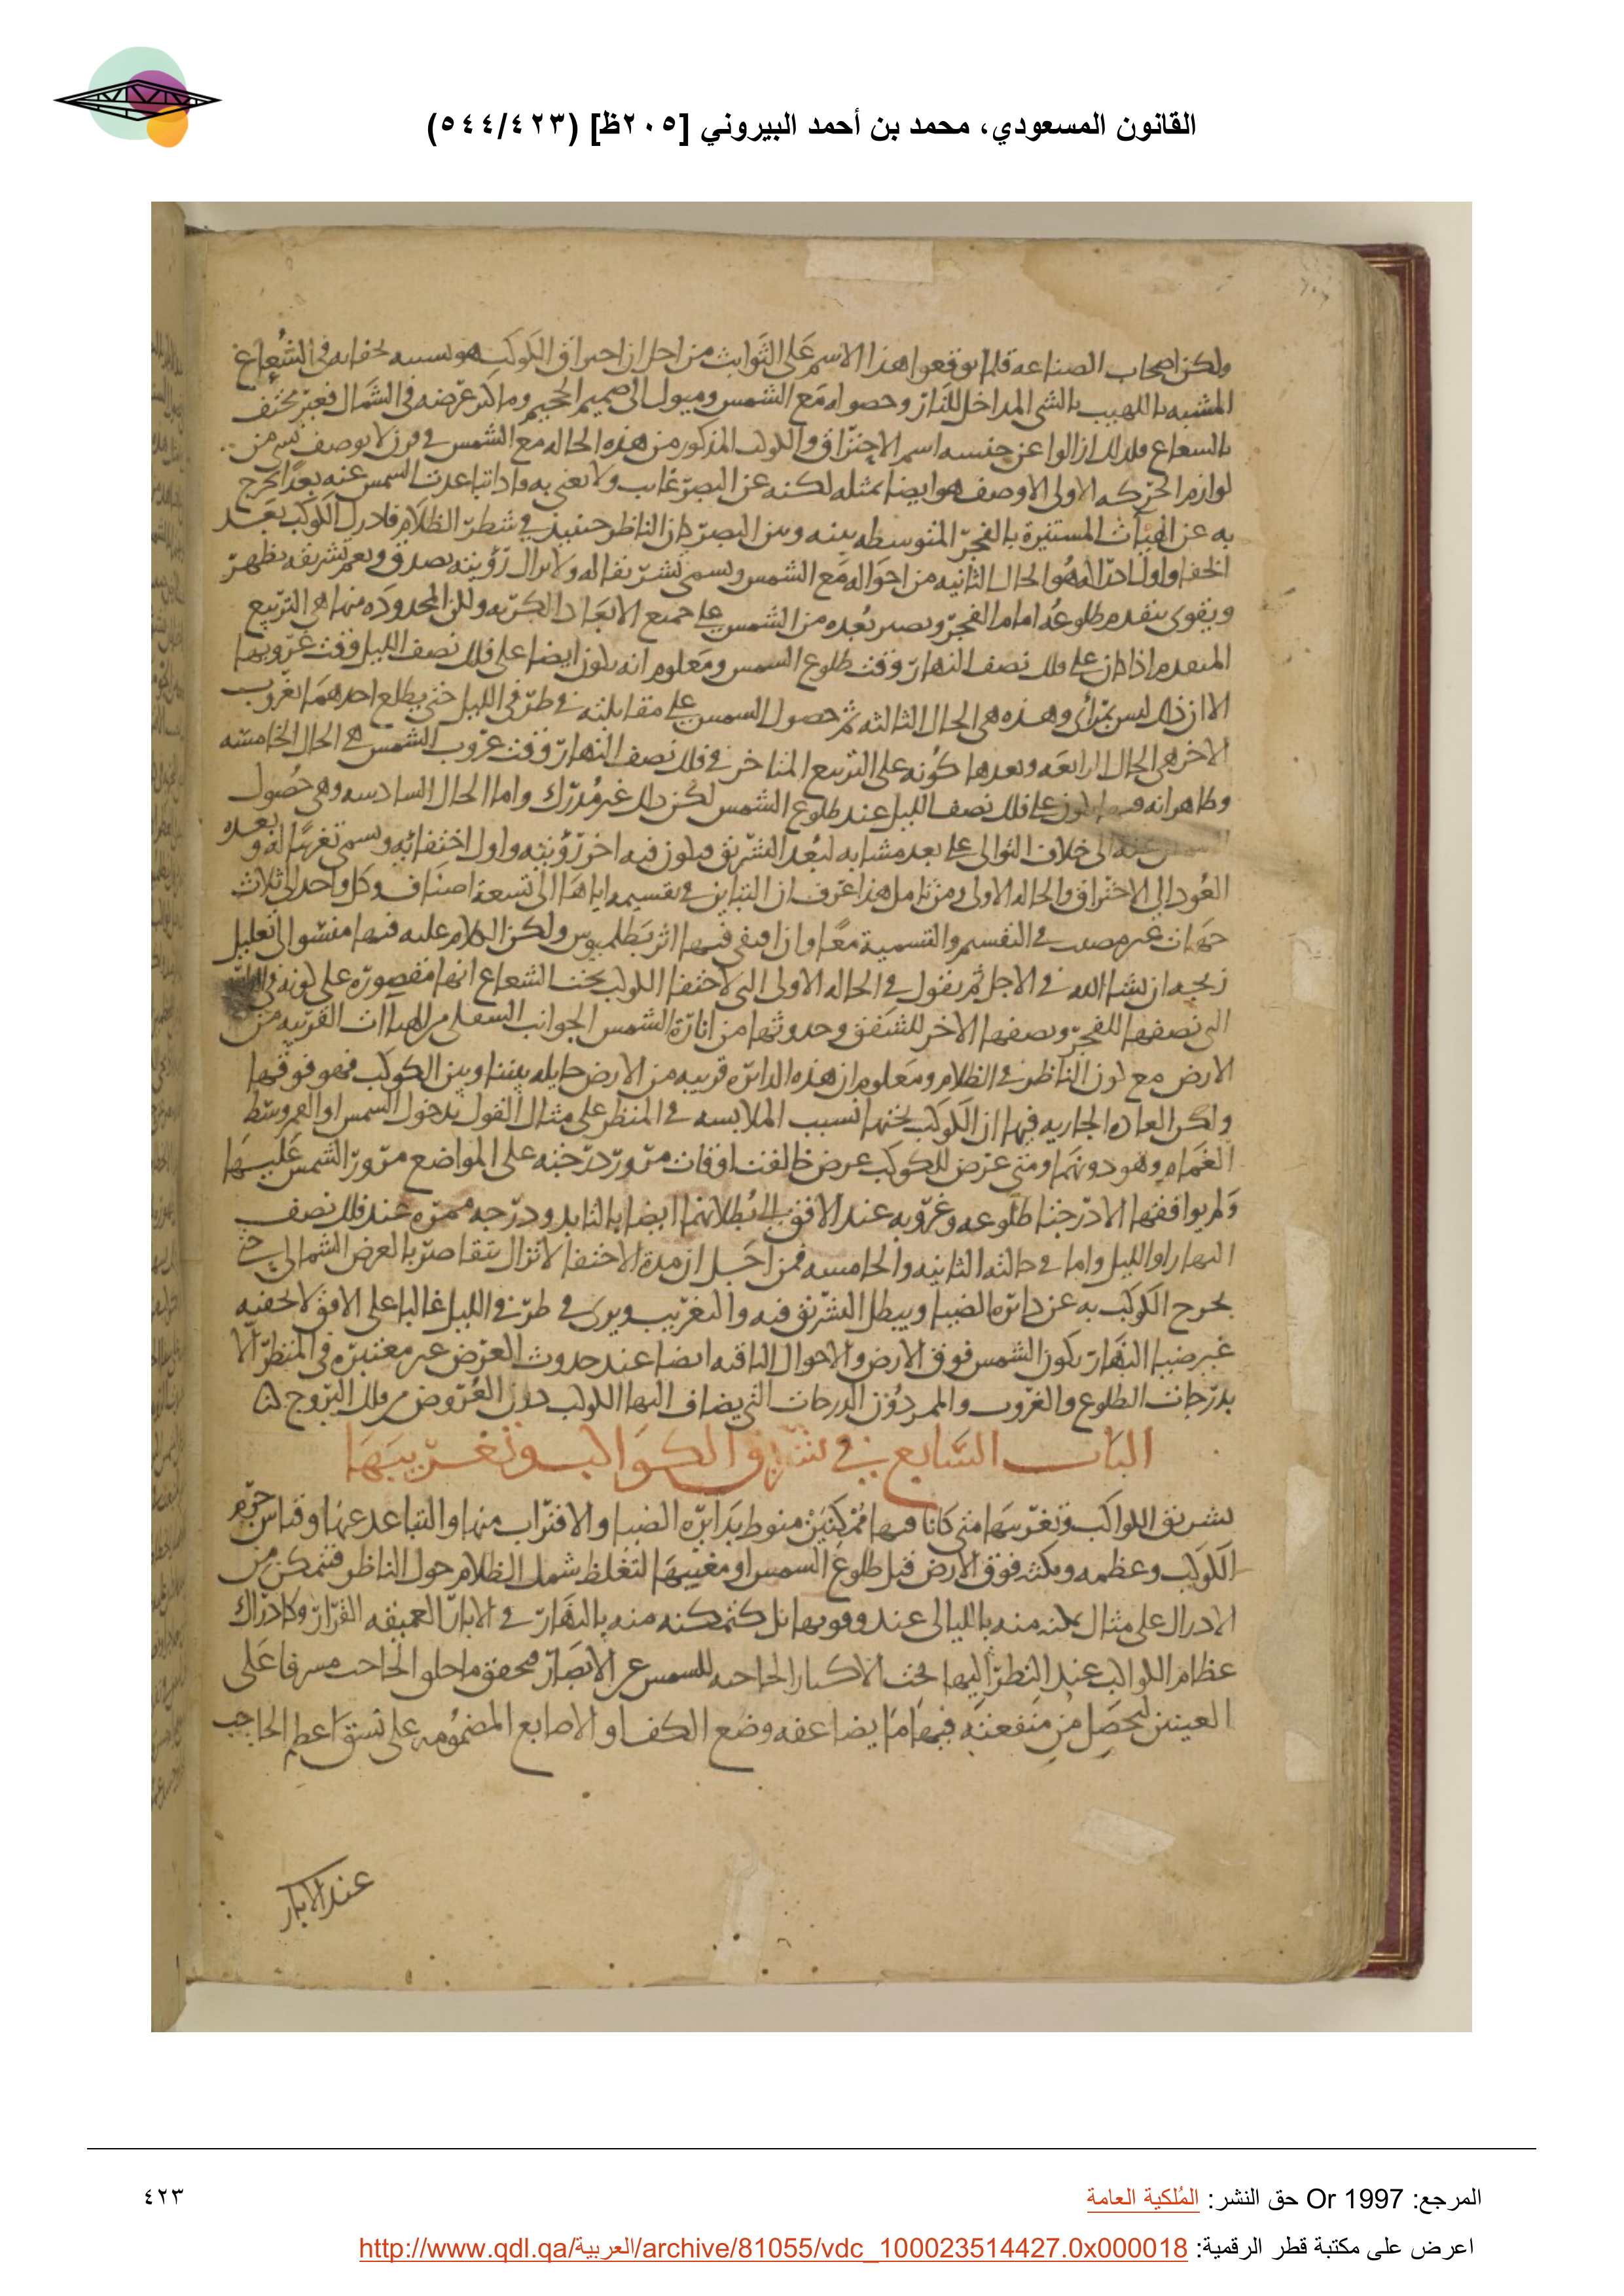 القانون المسعودي، محمد بن أحمد البيروني [٢٠٥ظ] (٥٤٤/٤٢٣)
ولكن اصحاب الصناعه قلما يوقعوا هذا الاسم على الثوابت من اجل ان احتراق الكوكب هو تشبيه لخفايه في الشعاع
المشبه باللهيب بالشي المداخل للنار وحصوله مع الشمس وميول الى صميم الحميم وما كثر عرضه في الشمال فغير مختف
بالشعاع فلذلك ازالوا عن جنسه اسم الاحتراق والكوكب المذكور من هذه الحاله مع الشمس في لا يوصف بشي من
لوازم الحركه الاولى الا وصف هو ايضا بمثله لكنه عن البصر غايب ولا نعنى به فاذا تباعدت الشمس عنه بعدا خرج
به عن الهيات المستنيرة بالفجر المتوسطه بينه وبين البصر كان الناظر حينيذ في شطر الظلام فادرك الكوكب بعد
الخفا واول ادراكه هو الحال الثانيه من احواله مع الشمس ويسمى تشريقا له ولا يزال رؤيته بصدق وبعد تشريقه يظهر
ويقوى بتقدم طلوعه امام الفجر ويصير بعده من الشمس على جميع الابعاد الكريه ولكن المحدوده منها هي التربيع
المتقدم اذا كان على فلك نصف النهار وقت طلوع الشمس ومعلوم انه يكون ايضا على فلك نصف الليل وقت غروبها
الا ان ذلك ليس بمرأى وهذه هي الحال الثالثه ثم حصول الشمس على مقابلته في طرفي الليل حتى يطلع احدهما بغروب
الاخر هي الحال الرابعه وبعدها كونه على التربيع المتاخر في فلك نصف النهار وقت غروب الشمس هي الحال الخامسه
وظاهر انه يكون على فلك نصف الليل عند طلوع الشمس لكن ذلك غير مدرك واما الحال السادسه وهي حصول
عنه الى خلاف التوالى على بعد مشابه لبعد التشريق فيكون فيه اخر رؤيته واول اختفائه ويسمى تغريبا له وبعده
العود الى الاحتراق والحاله الاولى ومن تامل هذا عرف ان التباين في تقسيم اياها الى تسعة اصناف وكل واحد الى ثلاث
جهات غير مصيب في التقسيم والتسمية معا وان اقتفى فيها اثر بطلميوس ولكن الكلام عليه فيها الى تعليل
زيجه ان شا الله في الاجل ثم نقول في الحاله الاولى التي لاختفا الكوكب تحت الشعاع انها مقصورة على كونه في
التي نصفها للفجر ونصفها الاخر للشفق وحدوثها من انارة الشمس الجوانب السفلى من الهيات القريبه من
الارض مع كون الناظر في الظلام ومعلوم ان هذه الدائره قريبه من الارض حايله بيننا وبين الكوكب فهو فوقها
ولكن العاده الجاريه فيها ان الكوكب تحتها بسبب الملابسه في المنظر على مثال القول بدخول الشمس او القمر وسط
الغمام وهو دونهما ومتى عرض للكوكب عرض خالفت اوقات مرور درجته على المواضع مرور الشمس عليها
ولم يوافقها الا درجتا طلوعه وغروبه عند الافق ودرجه ممره عند فلك نصف
النهار او الليل واما في حالته الثانيه والخامسه فمن اجل ان مدة الاختفا لا تزال تتقاصر بالعرض الشمالي حتى
يخرج الكوكب به عن دائره الضيا ويبطل التشريق فيه والتغريب ويرى في طرفي الليل غالبا على الافق لا تخفيه
غير ضيا النهار بكون الشمس فوق الارض والاحوال الباقيه ايضا عند حدوث العرض غير معتبره في المنظر الا
بدرجات الطلوع والغروب والممر دون الدرجات التي يضاف اليها الكوكب دون العروض من فلك البروج
الباب السابع في تشريق الكواكب وتغريبها
تشريق الكواكب وتغريبها متى كانا فيها ممكنين منوط بدائره الضيا والاقتراب منها والتباعد عنها وقياس جرم
الكوكب وعظمه ومكثه فوق الارض قبل طلوع الشمس او مغيبها لتغلظ شمل الظلام حول الناظر فتمكن من
الادراك على مثال تمكنه منه بالليالى عند وقوبها بل كتمكنه منه بالنهار في الابار العميقه القرار وكادراك
عظام الكواكب عند النظر اليها تحت الاكسار الحاجبه للشمس عن الابصار فيحقق الحاجب مشرفا على
العينين ليحصل من منفعته فيها ما يضاعفه وضع الكف او الاصابع المضمومه على نسق اعظم الحاجب
عند الابار
المرجع: Or 1997 حق النشر: المُلكية العامة
٤٢٣
اعرض على مكتبة قطر الرقمية: http://www.qdl.qa/العربية/archive/81055/vdc_100023514427.0x000018